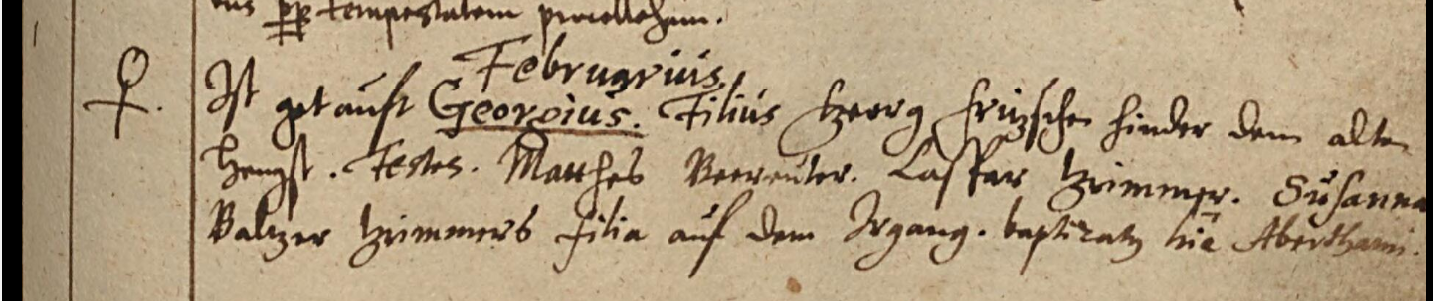 tempestatem
Februarius.
Ist getauft Georgius. Filius Georg Fritzschen hinder dem alten
Hengst. Testes. Matthes Beereuter. Caspar Zrimmer. Susanna
Baltzer Zrimmers filia auf dem Irgang. baptizatus hic Aberthami.